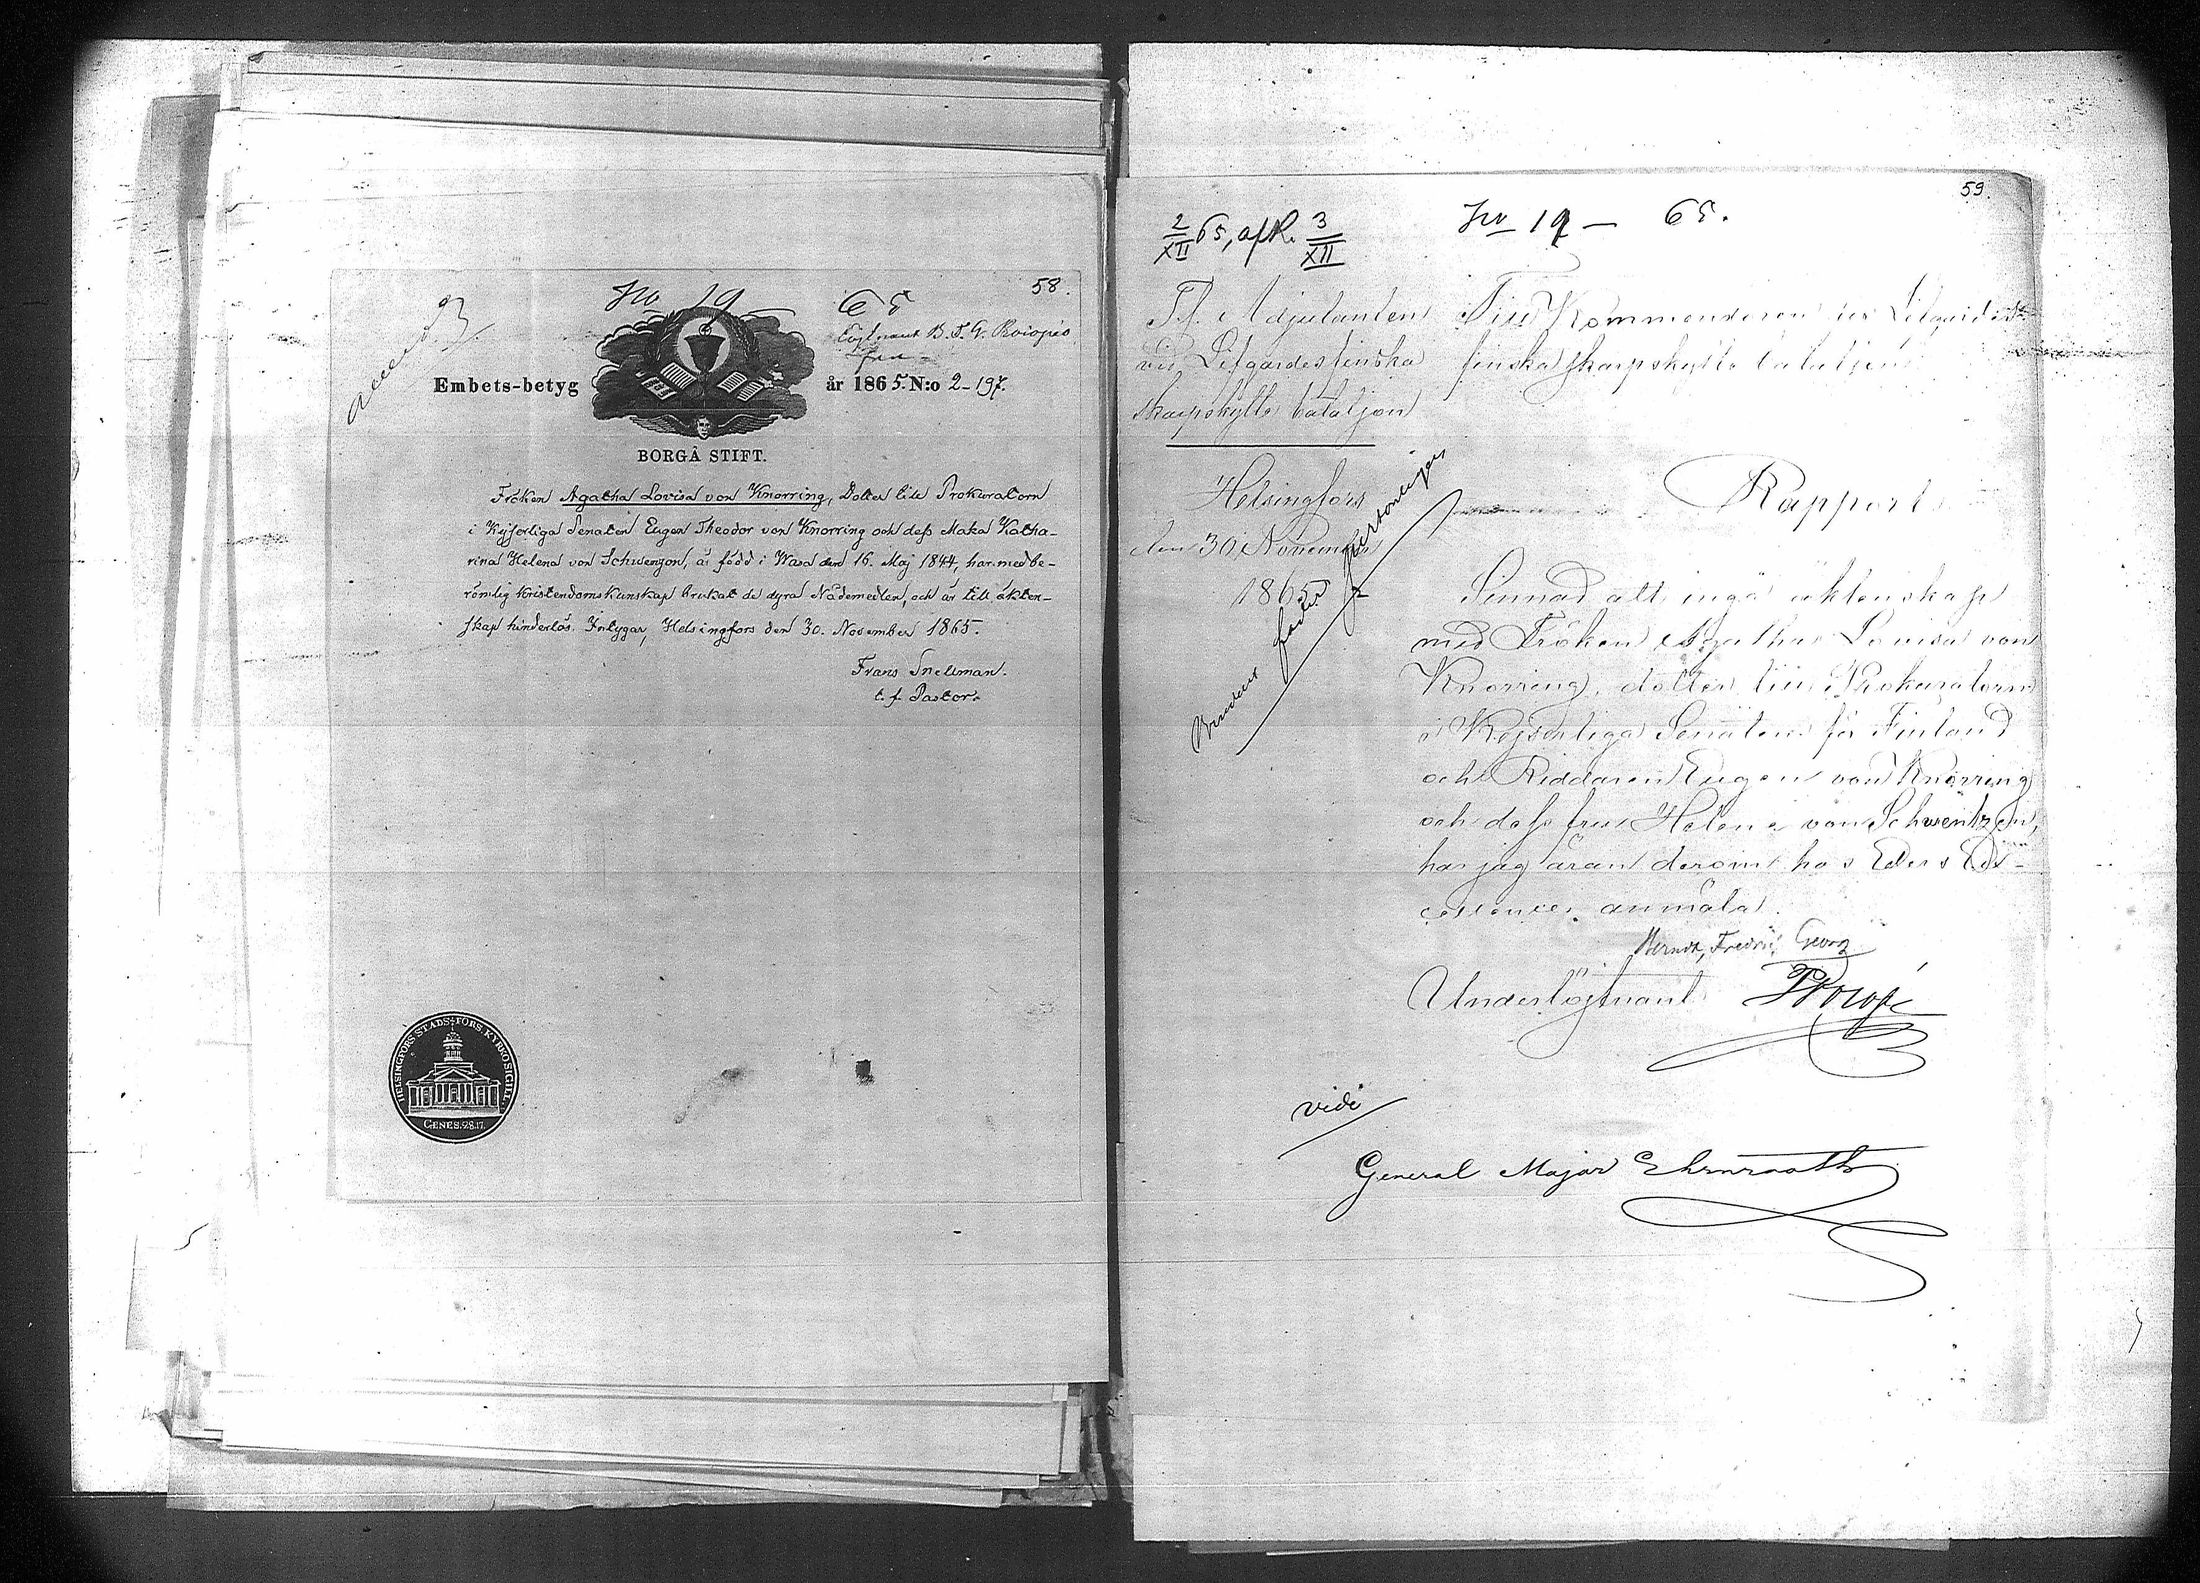 58.
No 19 65
annot. 3.
Löjtnant B. F. G. Procopés
Fru
Embets-betyg år 1865. N:o 2-197.
BORGÅ STIFT.
Fröken Agatha Lovisa von Knorring, Dotter till Prokuratorn
i Kejserliga Senaten Eugen Theodor von Knorring och dess Maka Katha-
rina Helena von Schwenzon, är född i Wasa den 16. Maj 1844, har med be-
römlig Kristendomskunskap brukat de dyra Nådemedlen, och är till äkten-
skap hinderlös. Intygar, Helsingfors den 30. November 1865.
Frans Snellman.
t. f. Pastor.
HELSINGFORS STADS FÖRS. KYRKOSIGILL.
GENES. 28.17.
59.
2/XII 65, afK. 3/XII
No 19 – 65.
T.f. Adjutanten
vid Lifgardes finska
skarpskytte bataljon
Helsingfors
den 30 November
1865
Till Kommendören för Lifgardets
finska skarpskytte bataljon
Rapport
Sinnad att ingå äktenskap
med Fröken Agatha Lovisa von
Knorring, dotter till Prokuratorn
i Kejserliga Senaten för Finland
och Riddaren Eugen von Knorring
och dess fru Helene von Schwentzon,
har jag äran derom hos Eders Ex-
cellence anmäla.
Berndt, Fredric Georg
Underlöjtnant Procopé
vidi
General Major Ehrnrooth